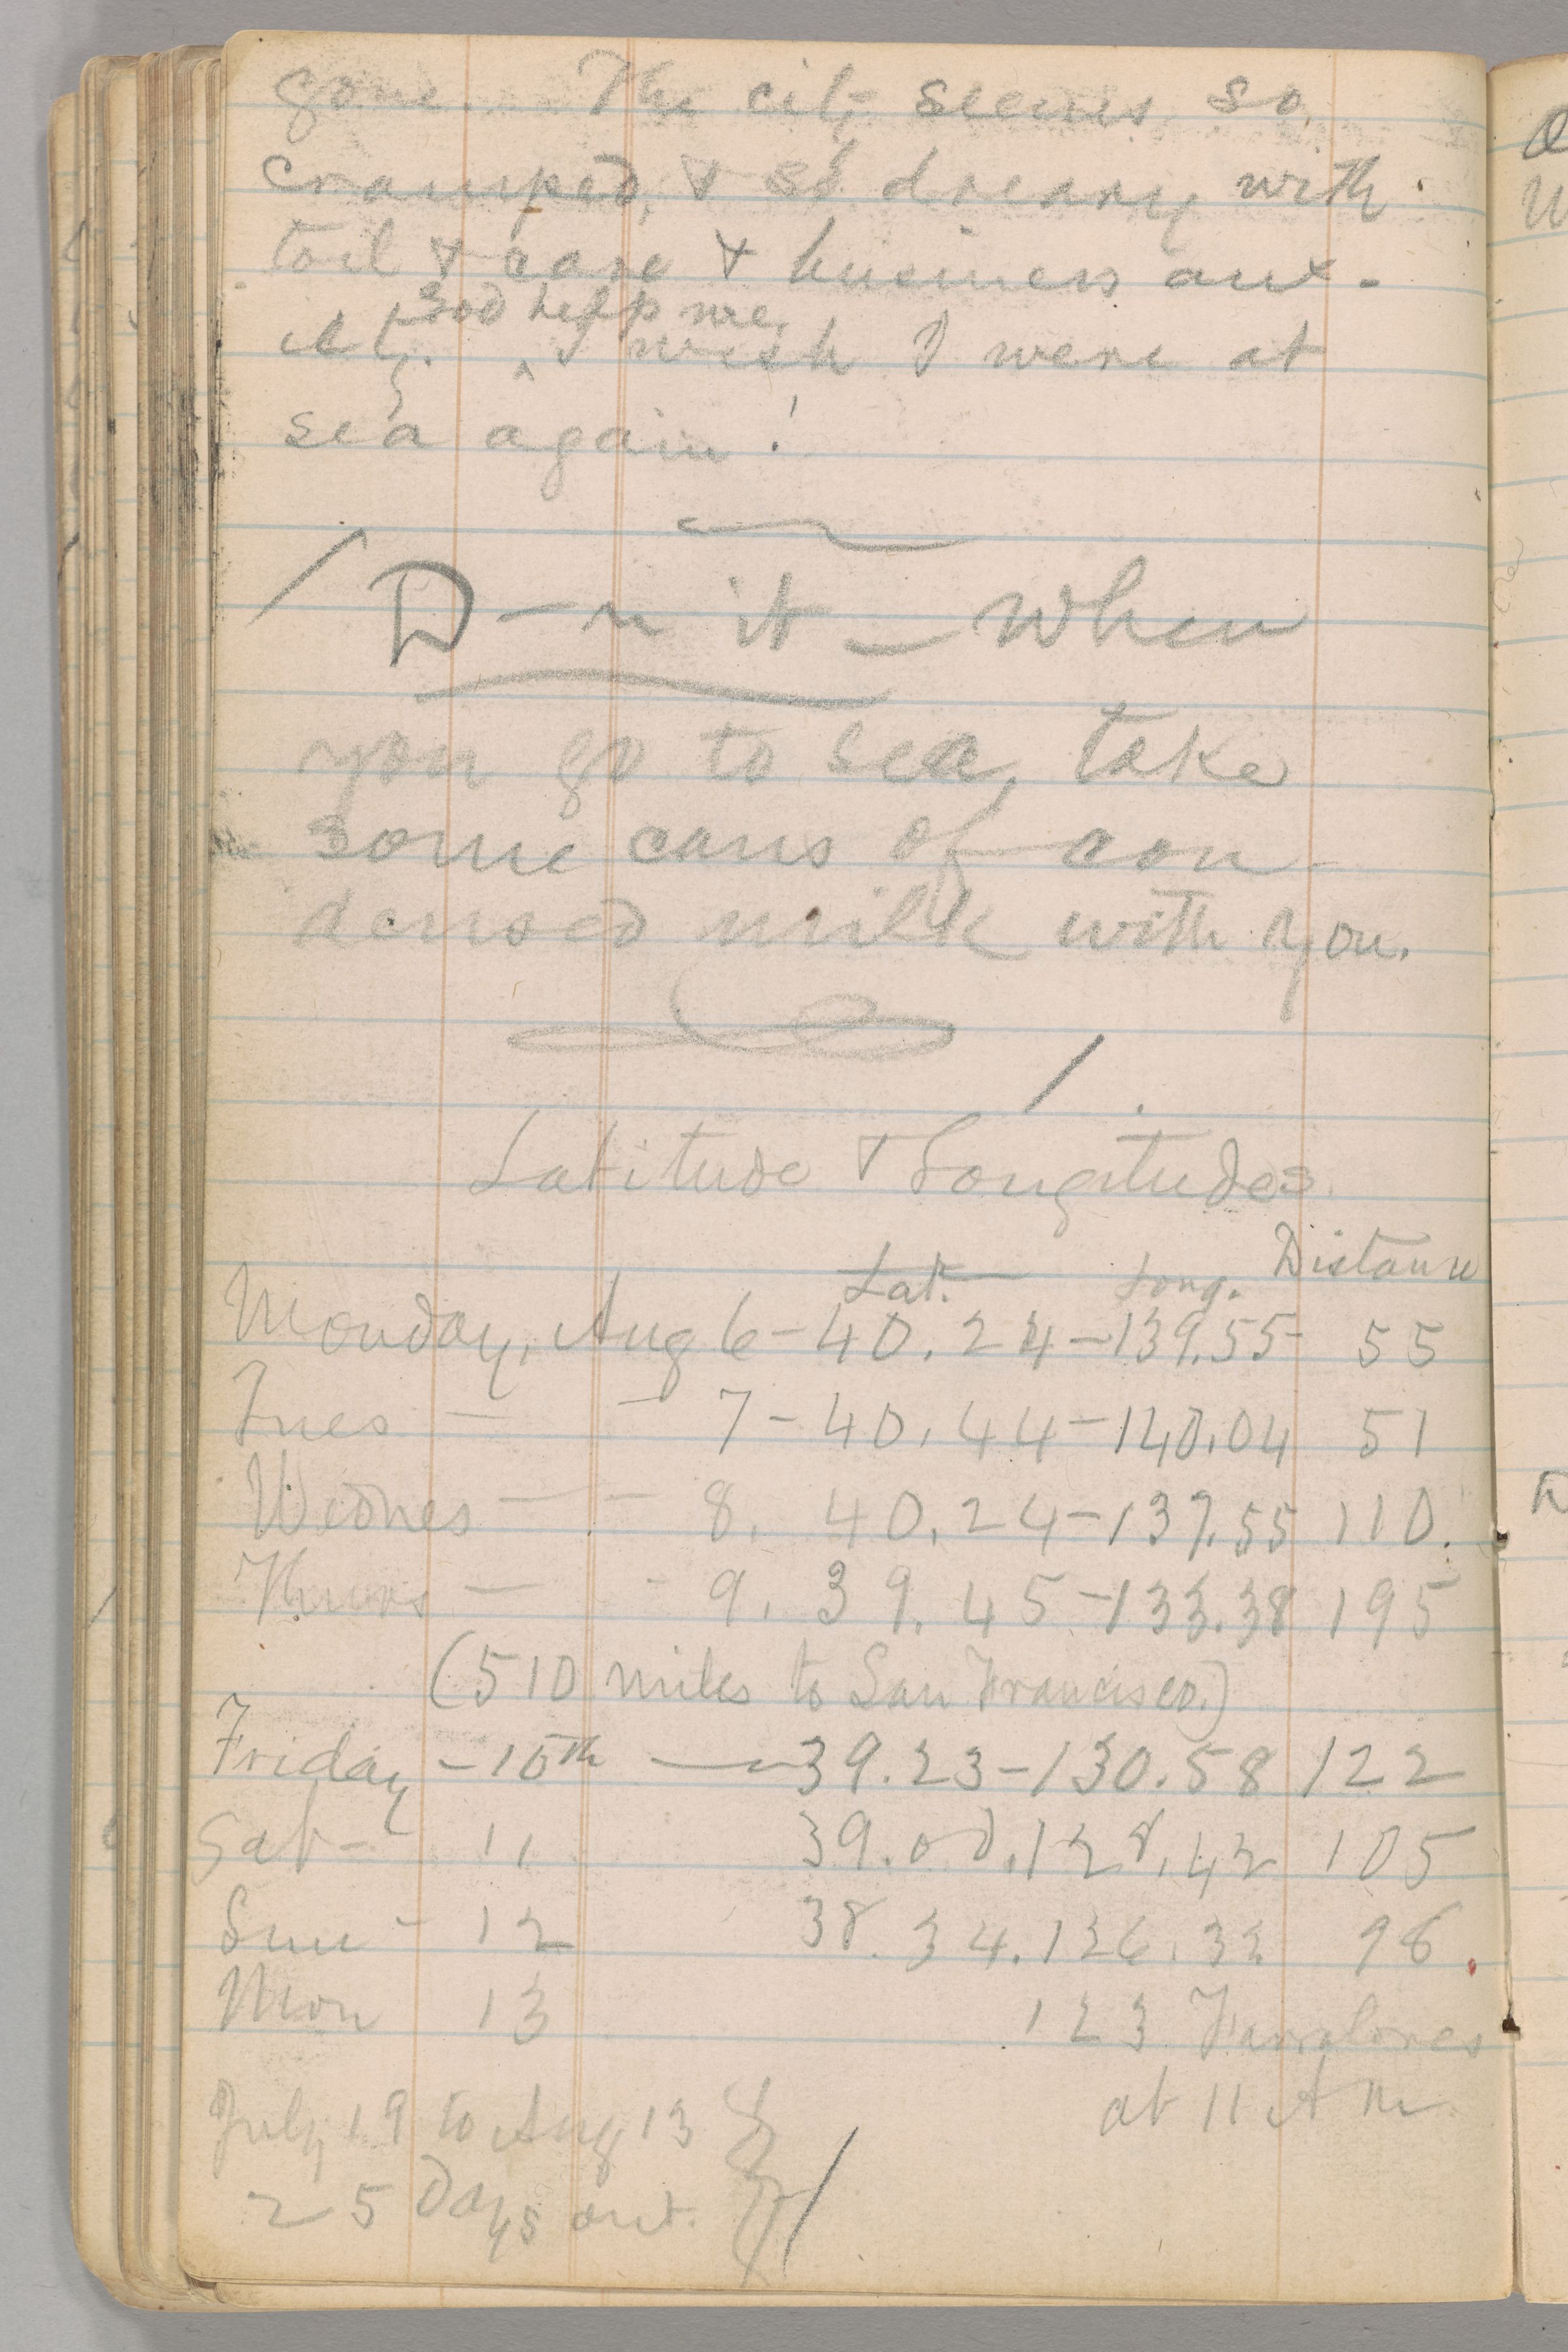 gone. The city seems so
cramped, & so dreary with
toil & care & business anx-
God help me,
iety. ^ I wish I were at
sea again!
D—n it — When
you go to sea, take
some cans of con-
densed milk with you.
Latitude & Longitudes
Lat. — Long. Distance
Monday, Aug 6 - 40.24 - 139.55 - 55
Tues — - 7 - 40.44 - 140.04 51
Wednes — - 8. 40.24 - 137.55 110.
Thurs — - 9. 39.45 - 133.38 195
(510 miles to San Francisco.)
Friday - 10th — 39.23 - 130.58 122
Sat - 11 39.00. 128.42 105
Sun - 12 38.34. 126.32 98.
Mon 13 123 Farralones
at 11 A M
July 19 to Aug 13
25 days out.